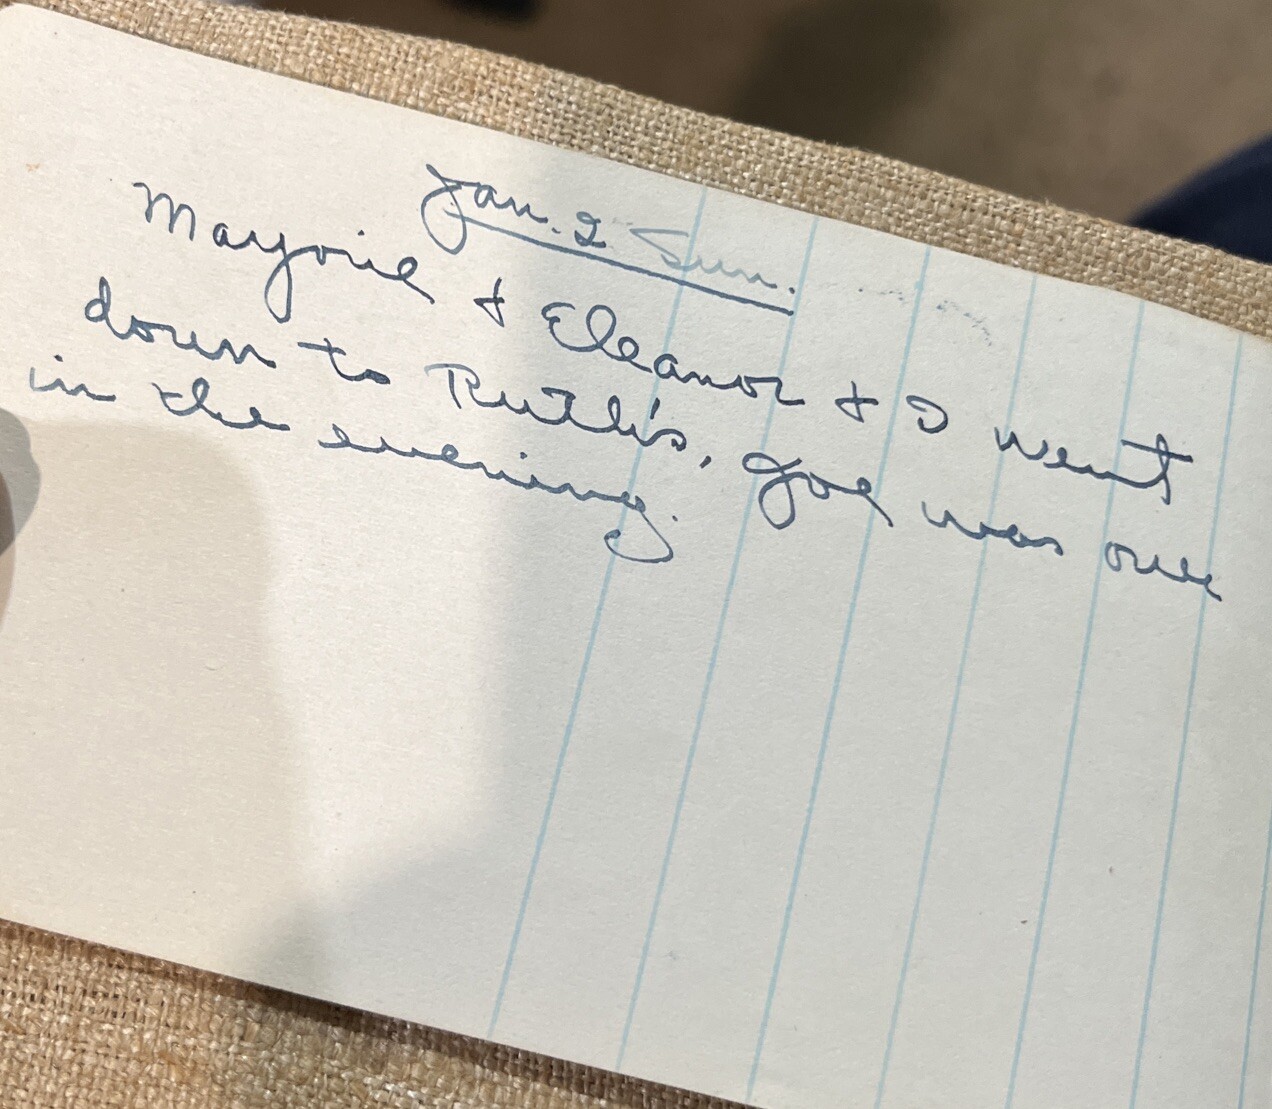 Jan. 2 Sun.
Marjorie & Eleanor & I went
down to Ruth's, Joe was over
in the evening.